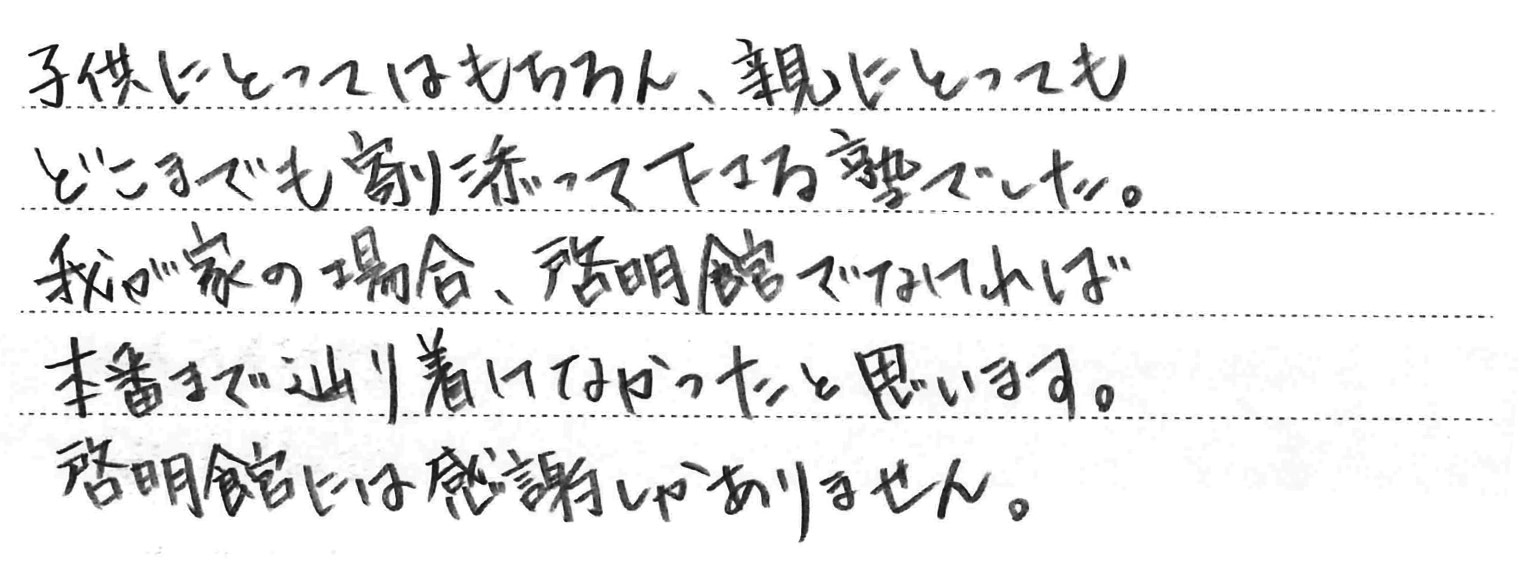 子供にとってはもちろん、親にとっても
どこまでも寄り添って下さる塾でした。
我が家の場合、啓明館でなければ
本番まで辿り着けてなかったと思います。
啓明館には感謝しかありません。